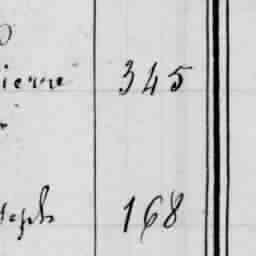 ierre 345
seph 168